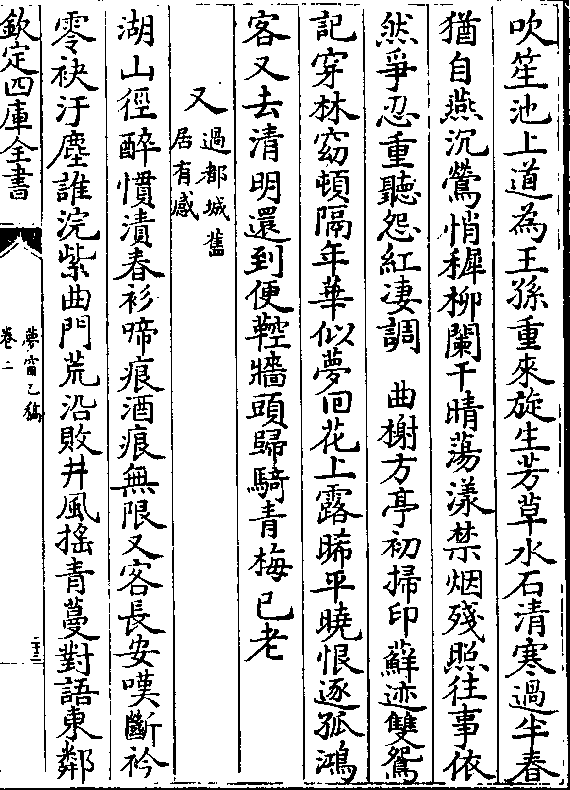 吹笙池上道為王孫重來旋生芳草水石清寒過半春
猶自燕沉鶯悄穉柳闌干晴蕩漾禁烟殘照往事依
然爭忍重聽怨紅凄調　曲榭方亭初掃印蘚迹雙鴛
記穿林窈頓隔年華似夢回花上露晞平曉恨逐孤鴻
客又去清明還到便鞚牆頭歸騎青梅已老
又過都城舊居有感
湖山徑醉慣漬春衫啼痕酒痕無限又客長安嘆斷衿
零袂汙塵誰浣紫曲門荒沿敗井風搖青蔓對語東鄰
欽定四庫全書
夢窗乙稿
卷二
二十三